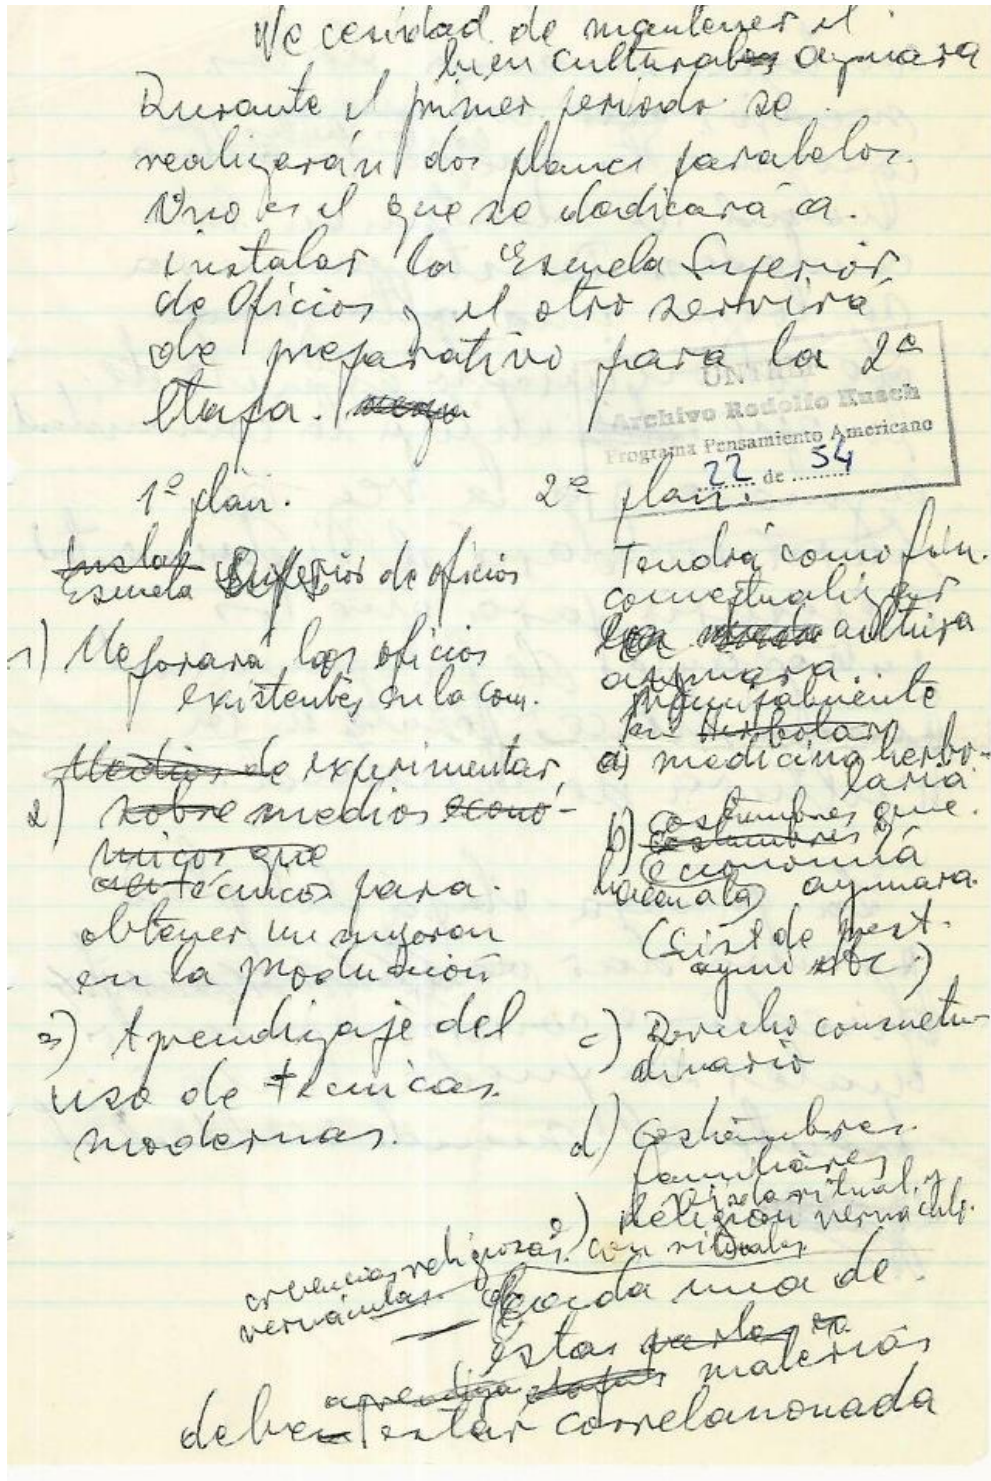 Necesidad de mantener el
bien cultural aymara
Durante el primer periodo se
realizarán dos planes paralelos.
Uno es el que se dedicará a
instalar la Escuela Superior
de Oficios y el otro servirá
de preparativo para la 2ª
etapa.
UNTREF
Archivo Rodolfo Kusch
Programa Pensamiento Americano
22 de 54
1º plan.
Escuela Superior de oficios
1) Mejorará los oficios
existentes en la com.
Medios de experimentar
2) sobre medios econó-
micos que
técnicos para
obtener un mejoran
en la producción
3) Aprendizaje del
uso de tecnicas
modernas.
2º plan.
Tendrá como fin
conceptualizar
la cultura
aymara.
principalmente
en herbolar
a) medicina herbo-
laria
costumbres que
b) costumbres
Economía
hacen a la aymara.
(Sist de prest.
ayni etc.)
c) Derecho consuetu-
dinario
d) Costumbres
familiares
Vida ritual y
e) Religión vernacula
con rituales
creencias religiosas
vernáculas
Cada una de
estas
materias
deben estar correlacionada